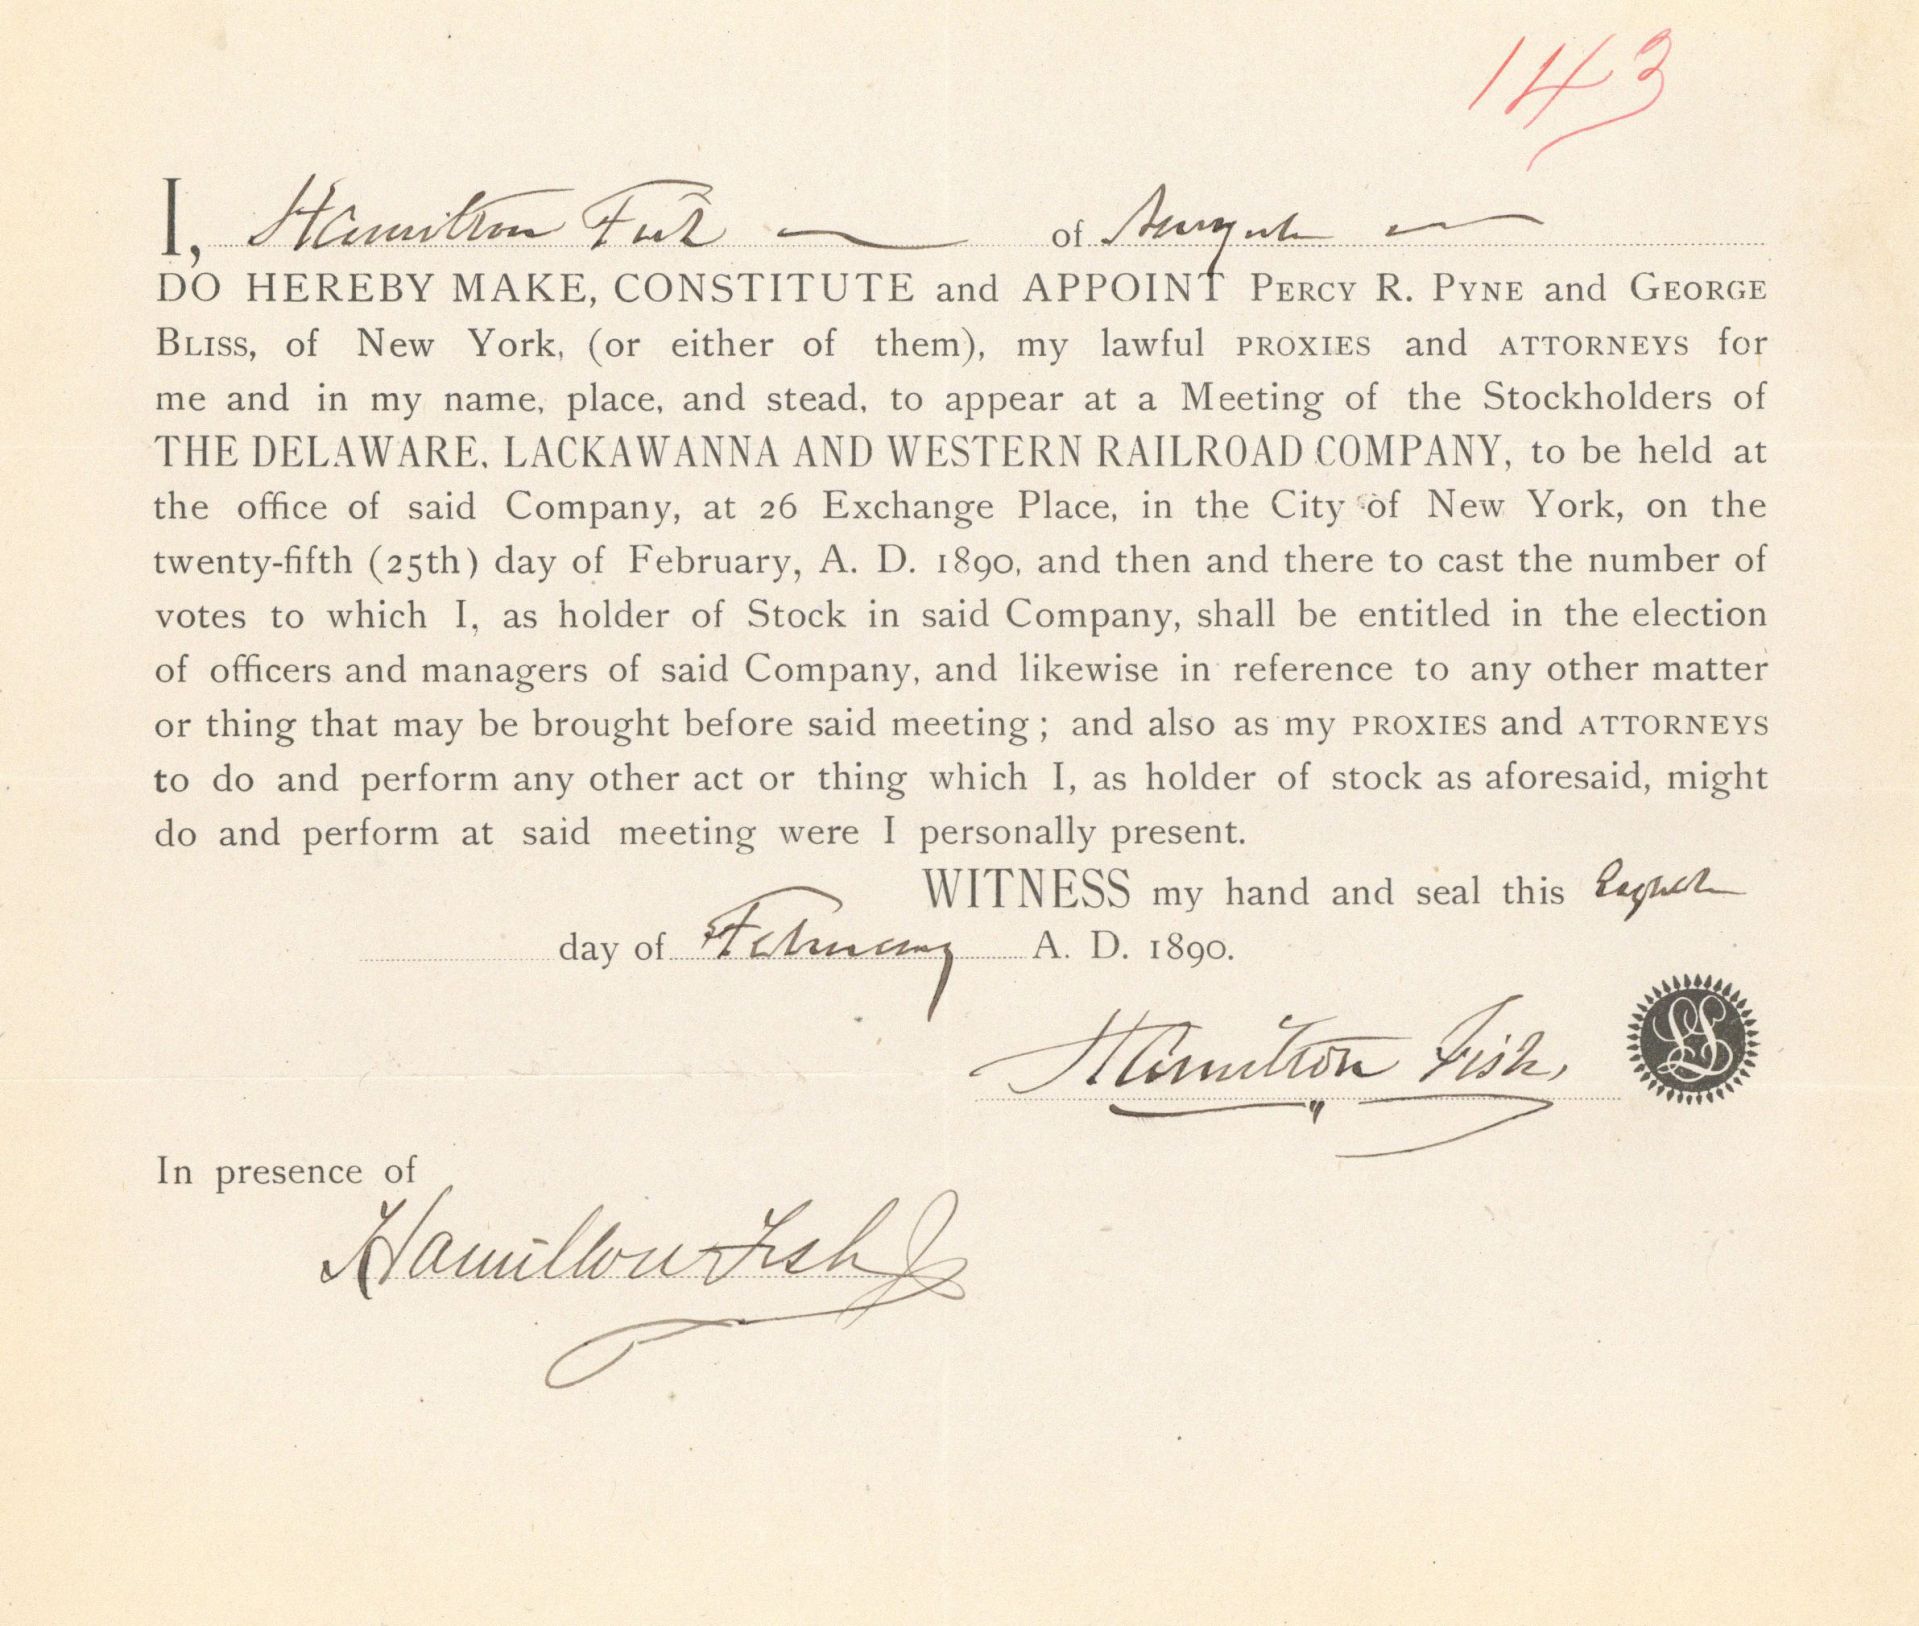 143
I, Hamilton Fish of New York
DO HEREBY MAKE, CONSTITUTE and APPOINT PERCY R. PYNE and GEORGE
BLISS, of New York, (or either of them), my lawful PROXIES and ATTORNEYS for
me and in my name, place, and stead, to appear at a Meeting of the Stockholders of
THE DELAWARE, LACKAWANNA AND WESTERN RAILROAD COMPANY, to be held at
the office of said Company, at 26 Exchange Place, in the City of New York, on the
twenty-fifth (25th) day of February, A. D. 1890, and then and there to cast the number of
votes to which I, as holder of Stock in said Company, shall be entitled in the election
of officers and managers of said Company, and likewise in reference to any other matter
or thing that may be brought before said meeting; and also as my PROXIES and ATTORNEYS
to do and perform any other act or thing which I, as holder of stock as aforesaid, might
do and perform at said meeting were I personally present.
WITNESS my hand and seal this Eighth
day of February A. D. 1890.
Hamilton Fish,
LS
In presence of
Hamilton Fish Jr